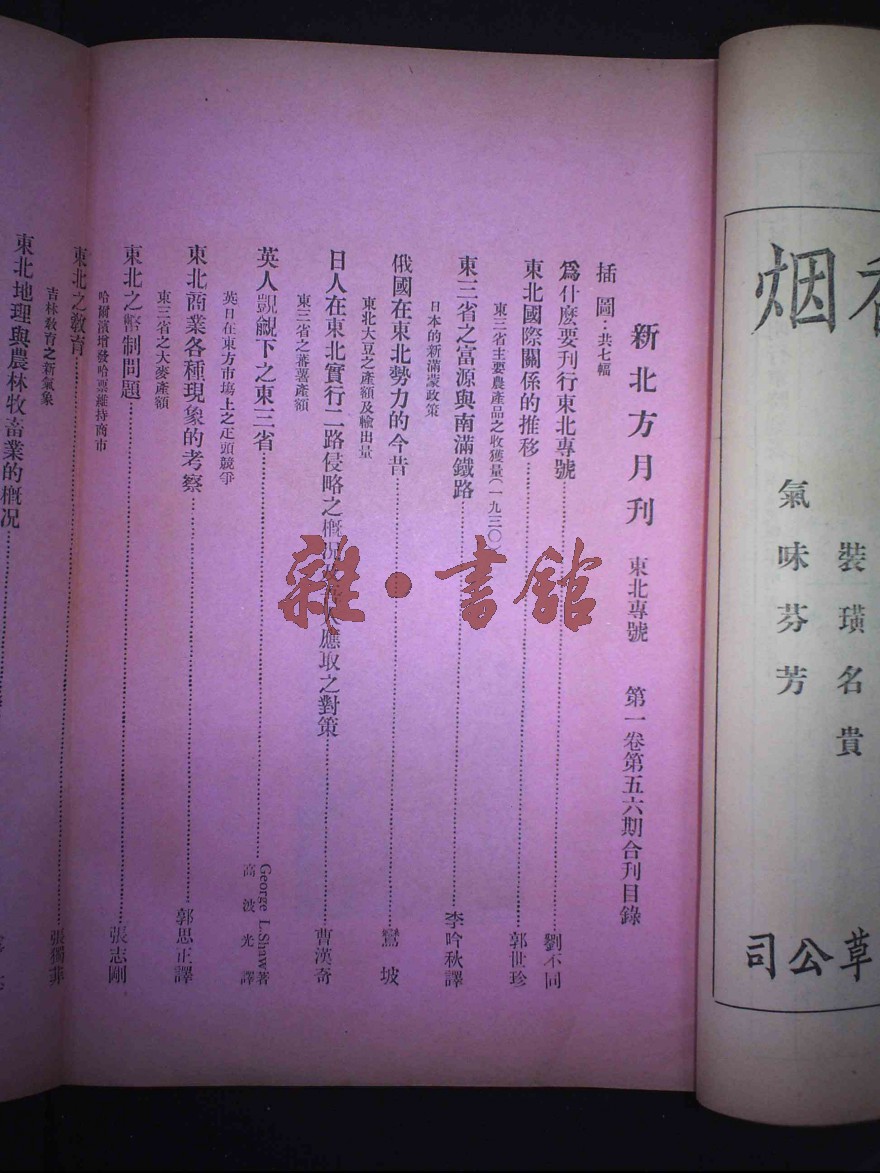 新北方月刊 東北專號 第一卷第五六期合刊目錄
插圖：共七幅
爲什麽要刊行東北專號……劉不同
東北國際關係的推移……郭世珍
東三省主要農產品之收獲量(一九三〇)
東三省之富源與南滿鐵路……李吟秋譯
日本的新滿蒙政策
俄國在東北勢力的今昔……鸞坡
東北大豆之產額及輸出量
日人在東北實行二路侵略之概況及 應取之對策……曹漢奇
東三省之蕃薯產額
英人覬覦下之東三省……George L.Shaw著 高波光譯
英日在東方市場上之疋頭競爭
東北商業各種現象的考察……郭思正譯
東三省之大麥產額
東北之幣制問題……張志剛
哈爾濱增發哈票維持商市
東北之敎育……張獨菲
吉林敎育之新氣象
東北地理與農林牧畜業的概况……
雜·書館
烟
裝璜名貴
氣味芬芳
草公司